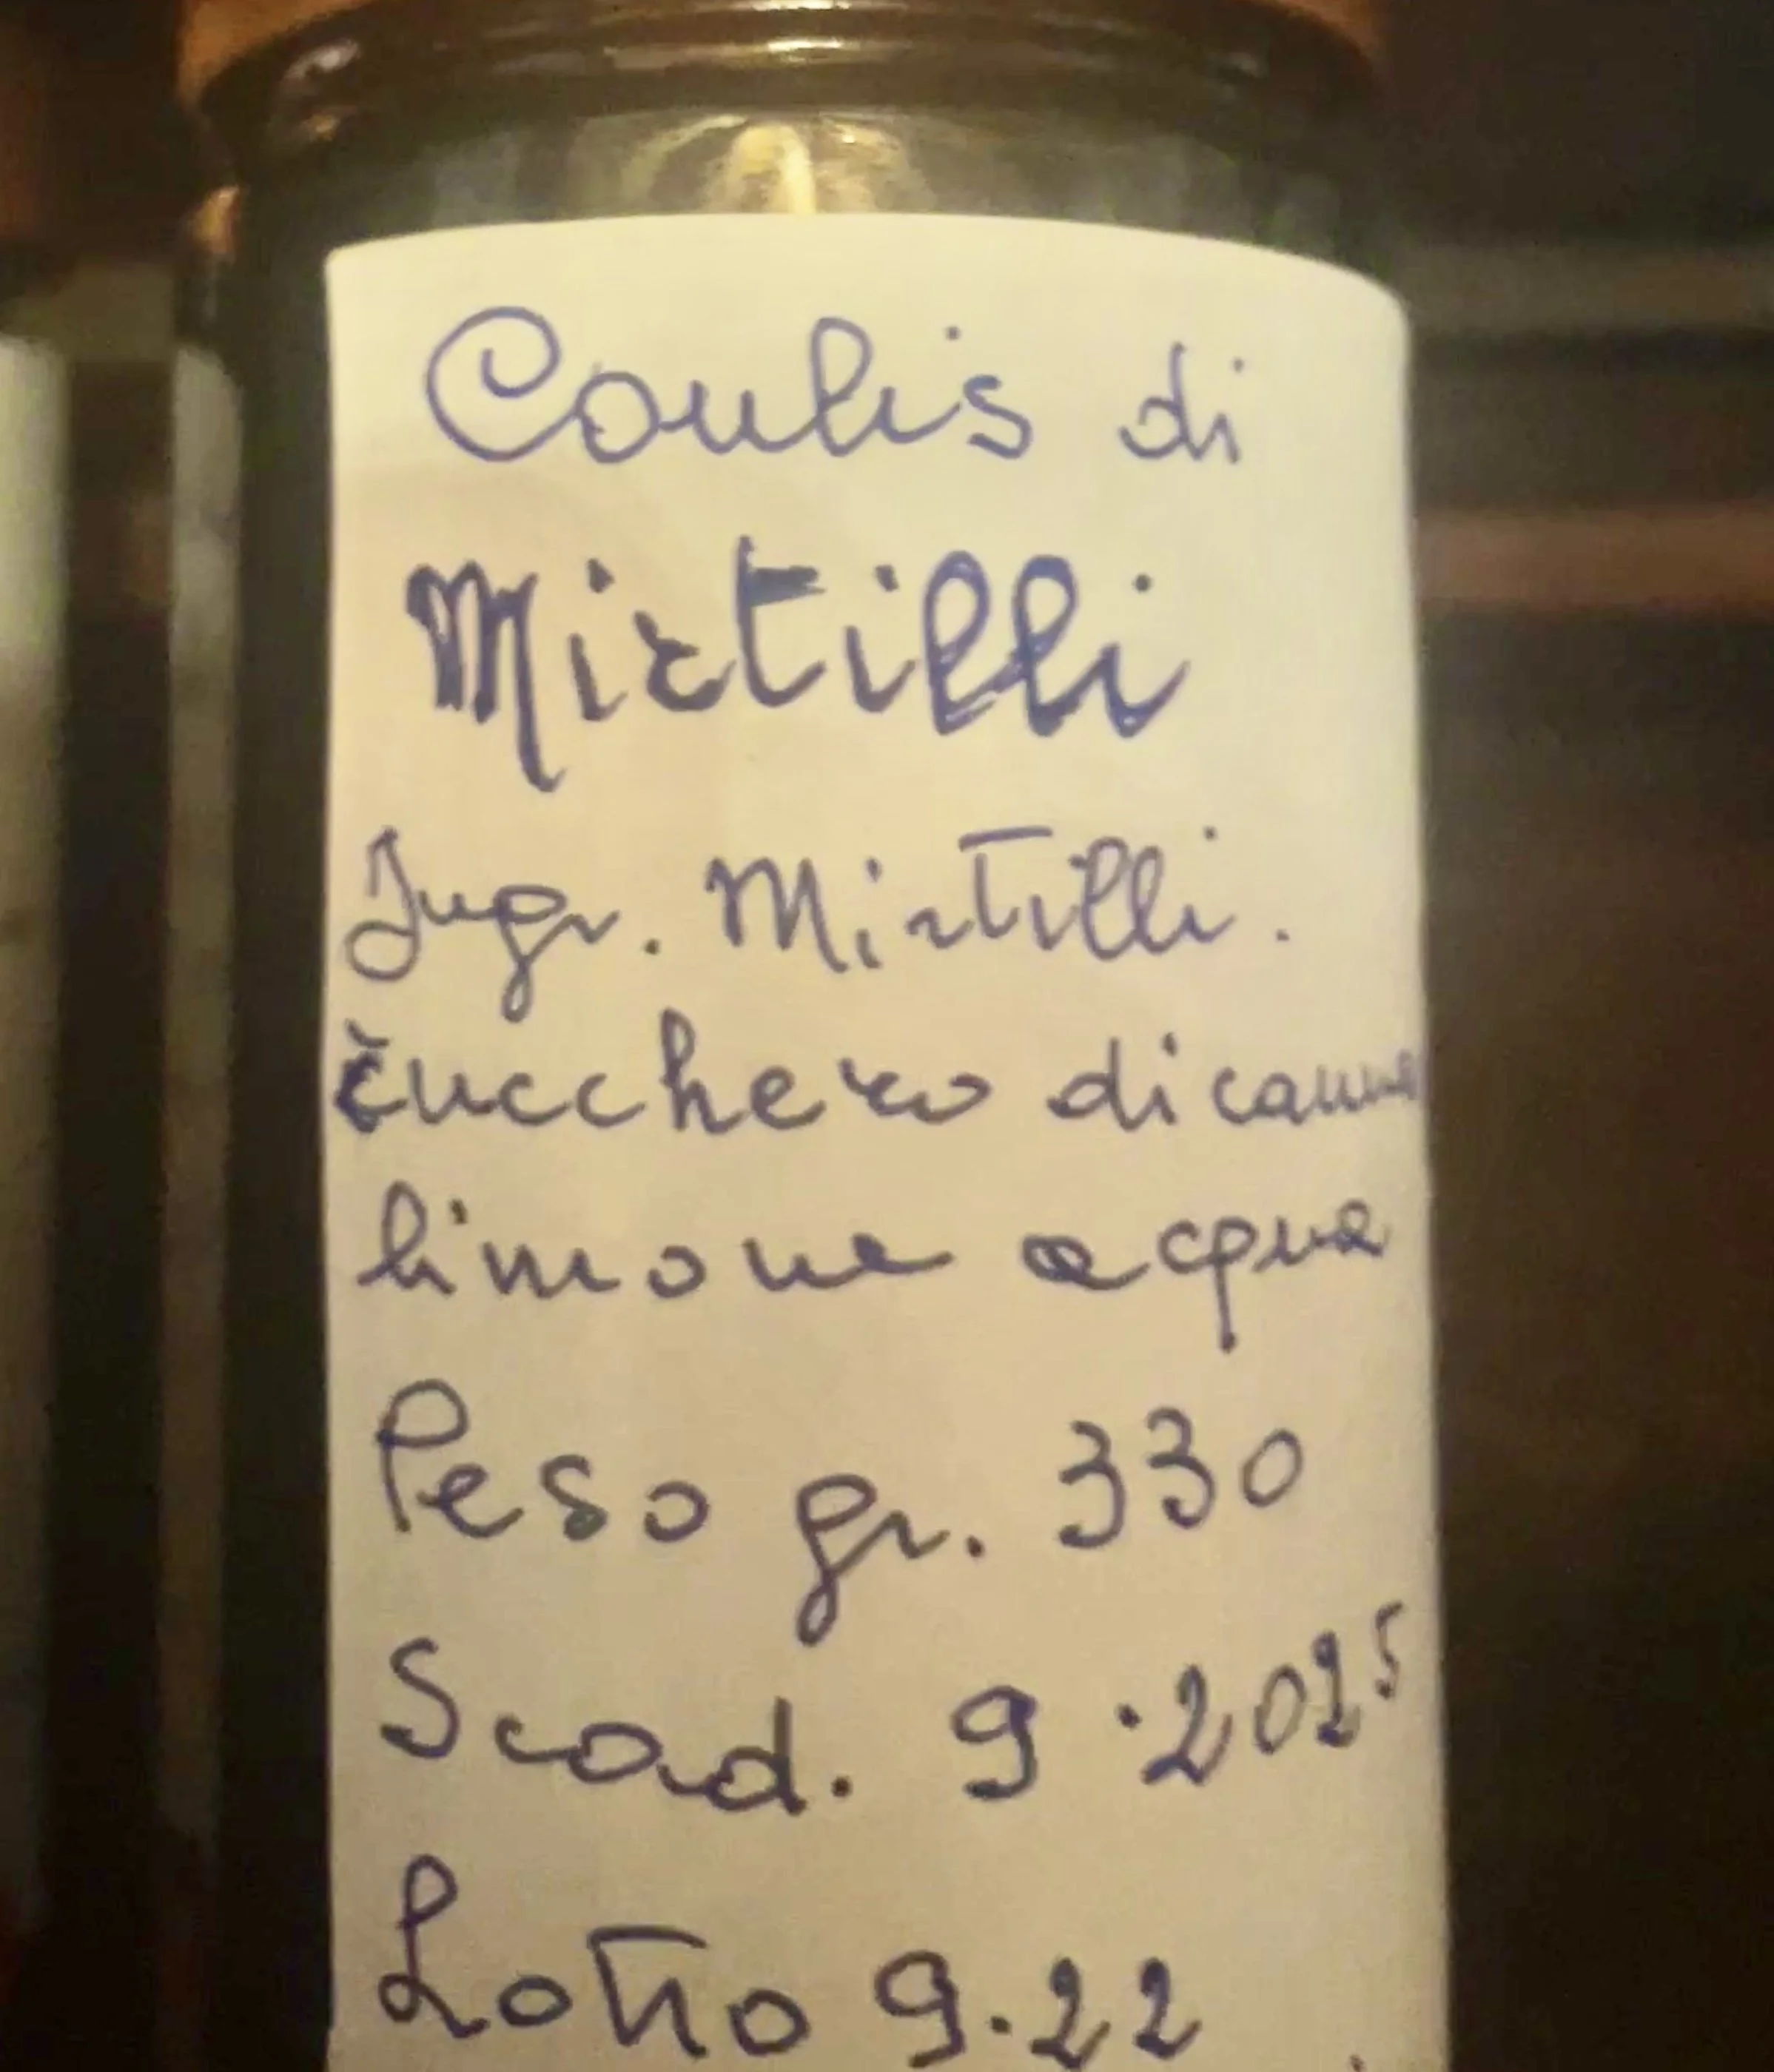 Coulis di
Mirtilli
Ingr. Mirtilli.
zucchero di canna
limone acqua
Peso gr. 330
Scad. 9.2025
Lotto 9.22